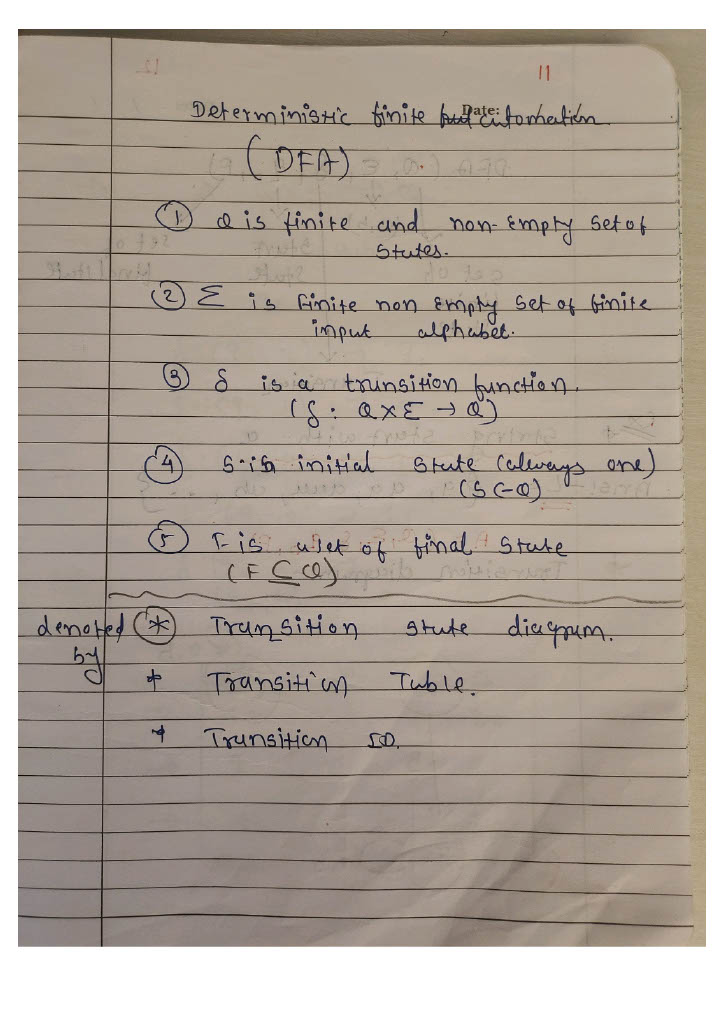 11
Date:
Deterministic finite automation
(DFA)
① Q is finite and non-Empty set of
states.
② Σ is finite non Empty set of finite
input alphabet.
③ δ is a transition function.
(δ: Q×Σ → Q)
④ S is initial state (always one)
(S ∈ Q)
⑤ F is a set of final state
(F ⊆ Q)
denoted by
* Transition state diagram.
* Transition Table.
* Transition ID.